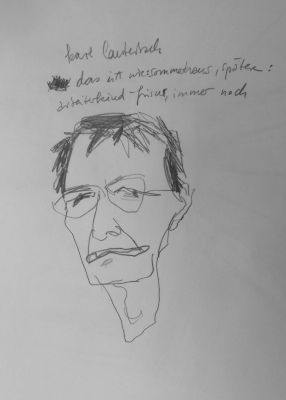 karl lauterbach
das ist wiesommathaus, später:
arbeiterkind-frisur, immer noch